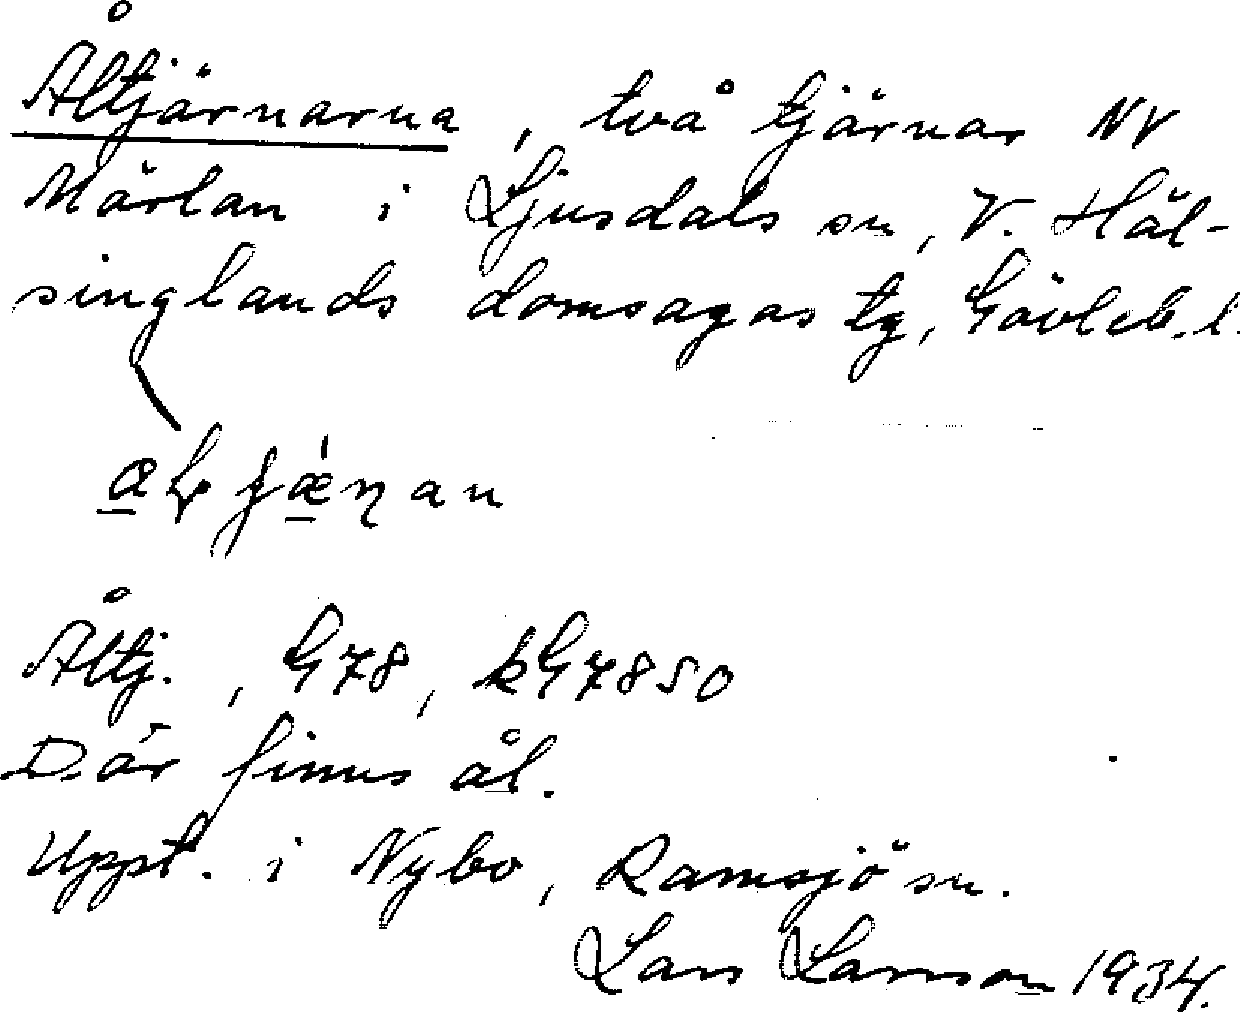 Åltjärnarna, två tjärnar NV
Mörlan i Ljusdals sn, V. Häl-
singlands domsagas tg, Gävleb. l.
Åltj., G78, kG7850
Där finns ål.
Uppt. i Nybo, Ramsjö sn.
Lars Larsson 1934.